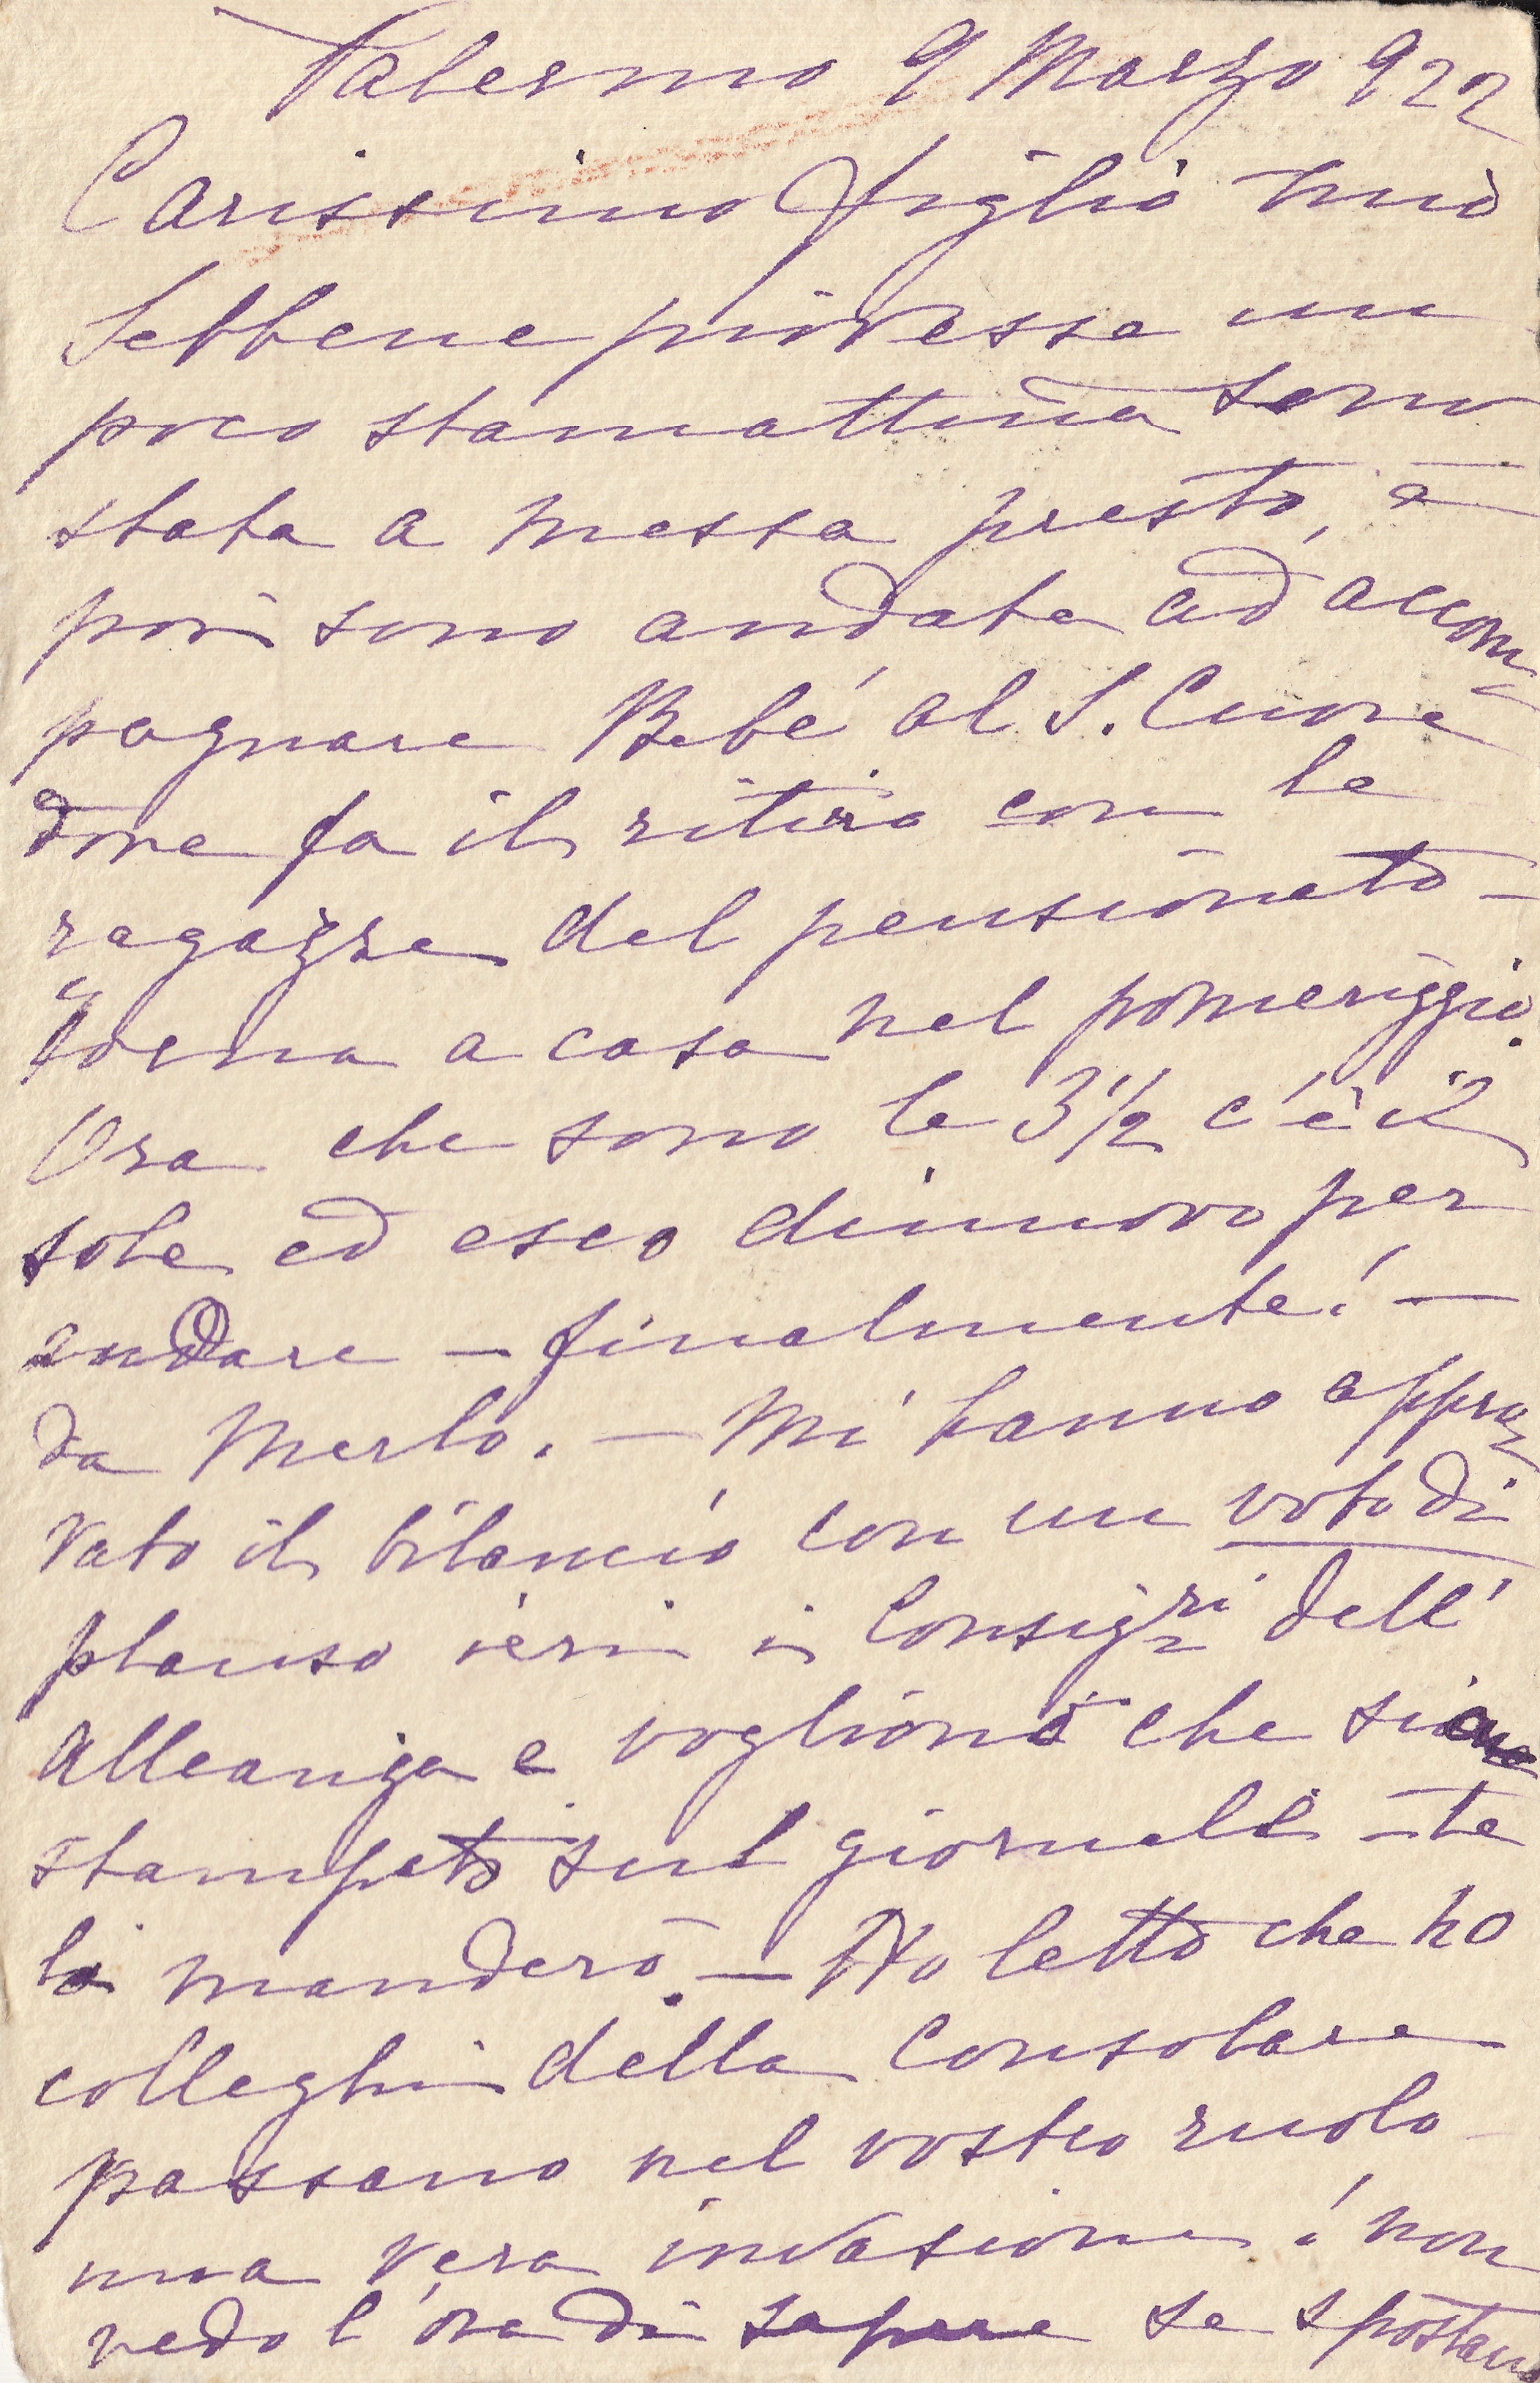 Palermo 9 Marzo 922
Carissimo figlio mio
Sebbene piovesse un
poco stamattina sono
stata a messa presto, e
poi sono andata ad accom
pagnare Bebé al S. Cuore
dove fa il ritiro con le
ragazze del pensionato -
Torna a casa nel pomeriggio.
Ora che sono le 3 1/2 c'è il
sole ed esco dinuovo per
andare — finalmente! —
da Merlo. — Mi hanno appro
vato il bilancio con un voto di
plauso ieri i Consigri dell'
Alleanza e vogliono che sia
stampato sul giornale - te
lo manderò. — Ho letto che 20
colleghi della Consolare
passano nel vostro ruolo
una vera invasione! non
vedo l'ora di sapere se spostano